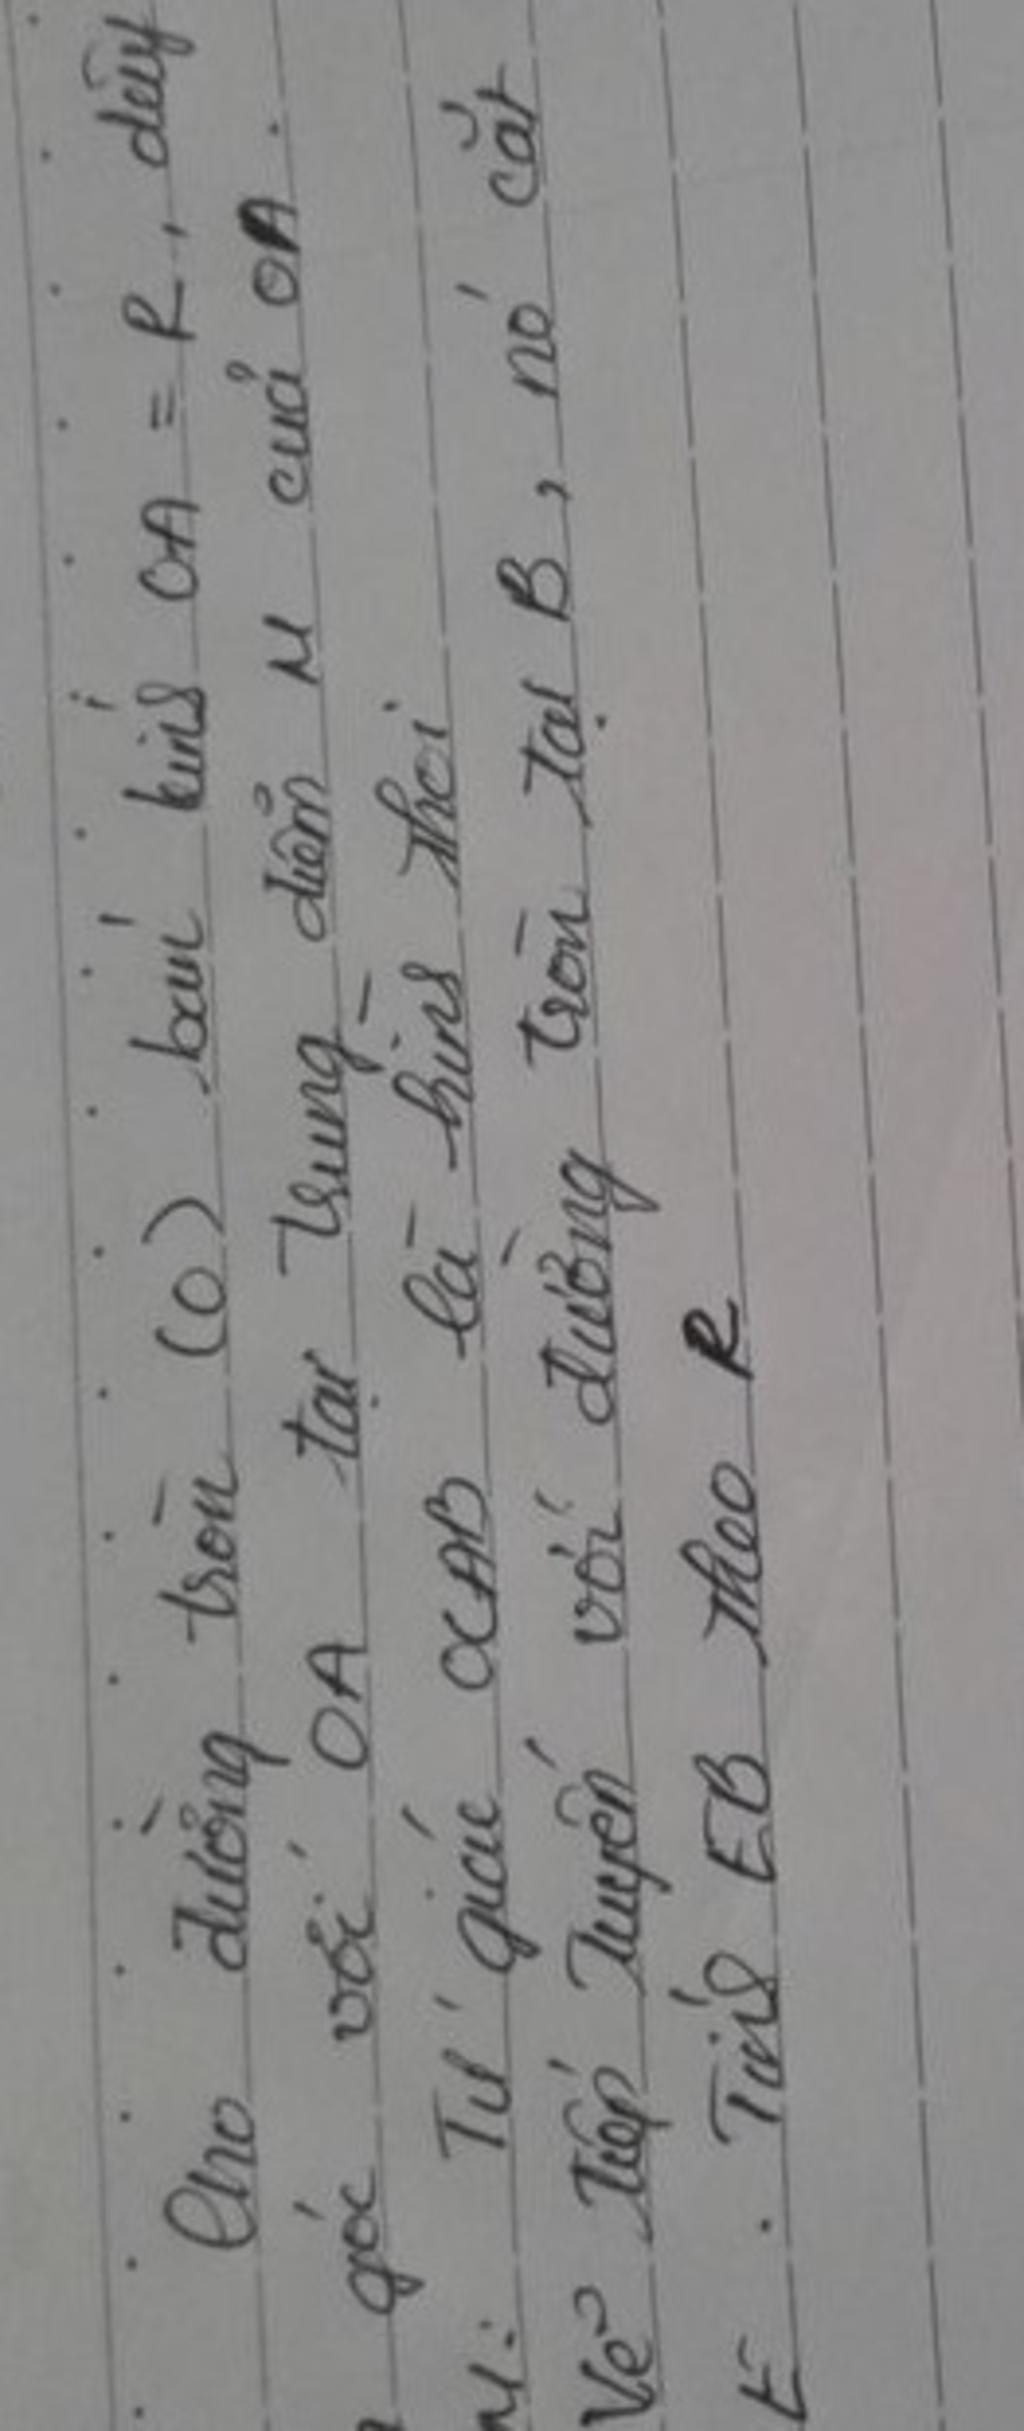 Cho đường tròn (O) bán kính OA = R, dây
góc với OA tại trung điểm M của OA.
M: Tứ giác OCAB là hình thoi
Vẽ tiếp tuyến với đường tròn tại B, nó cắt
E. Tính EB theo R